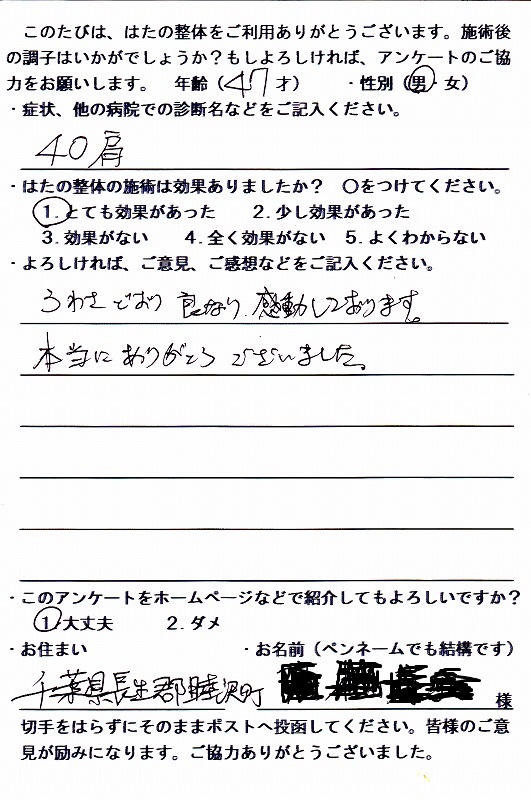 このたびは、はたの整体をご利用ありがとうございます。施術後
の調子はいかがでしょうか?もしよろしければ、アンケートのご協
力をお願いします。 年齢(47才) ・性別(男・女)
・症状、他の病院での診断名などをご記入ください。
40肩
・はたの整体の施術は効果ありましたか? 〇をつけてください。
1.とても効果があった 2.少し効果があった
3.効果がない 4.全く効果がない 5.よくわからない
・よろしければ、ご意見、ご感想などをご記入ください。
うわさどおり良くなり、感動しております。
本当にありがとうございました。
・このアンケートをホームページなどで紹介してもよろしいですか?
1.大丈夫 2.ダメ
・お住まい ・お名前(ペンネームでも結構です)
千葉県長生郡睦沢町 様
切手をはらずにそのままポストへ投函してください。皆様のご意
見が励みになります。ご協力ありがとうございました。